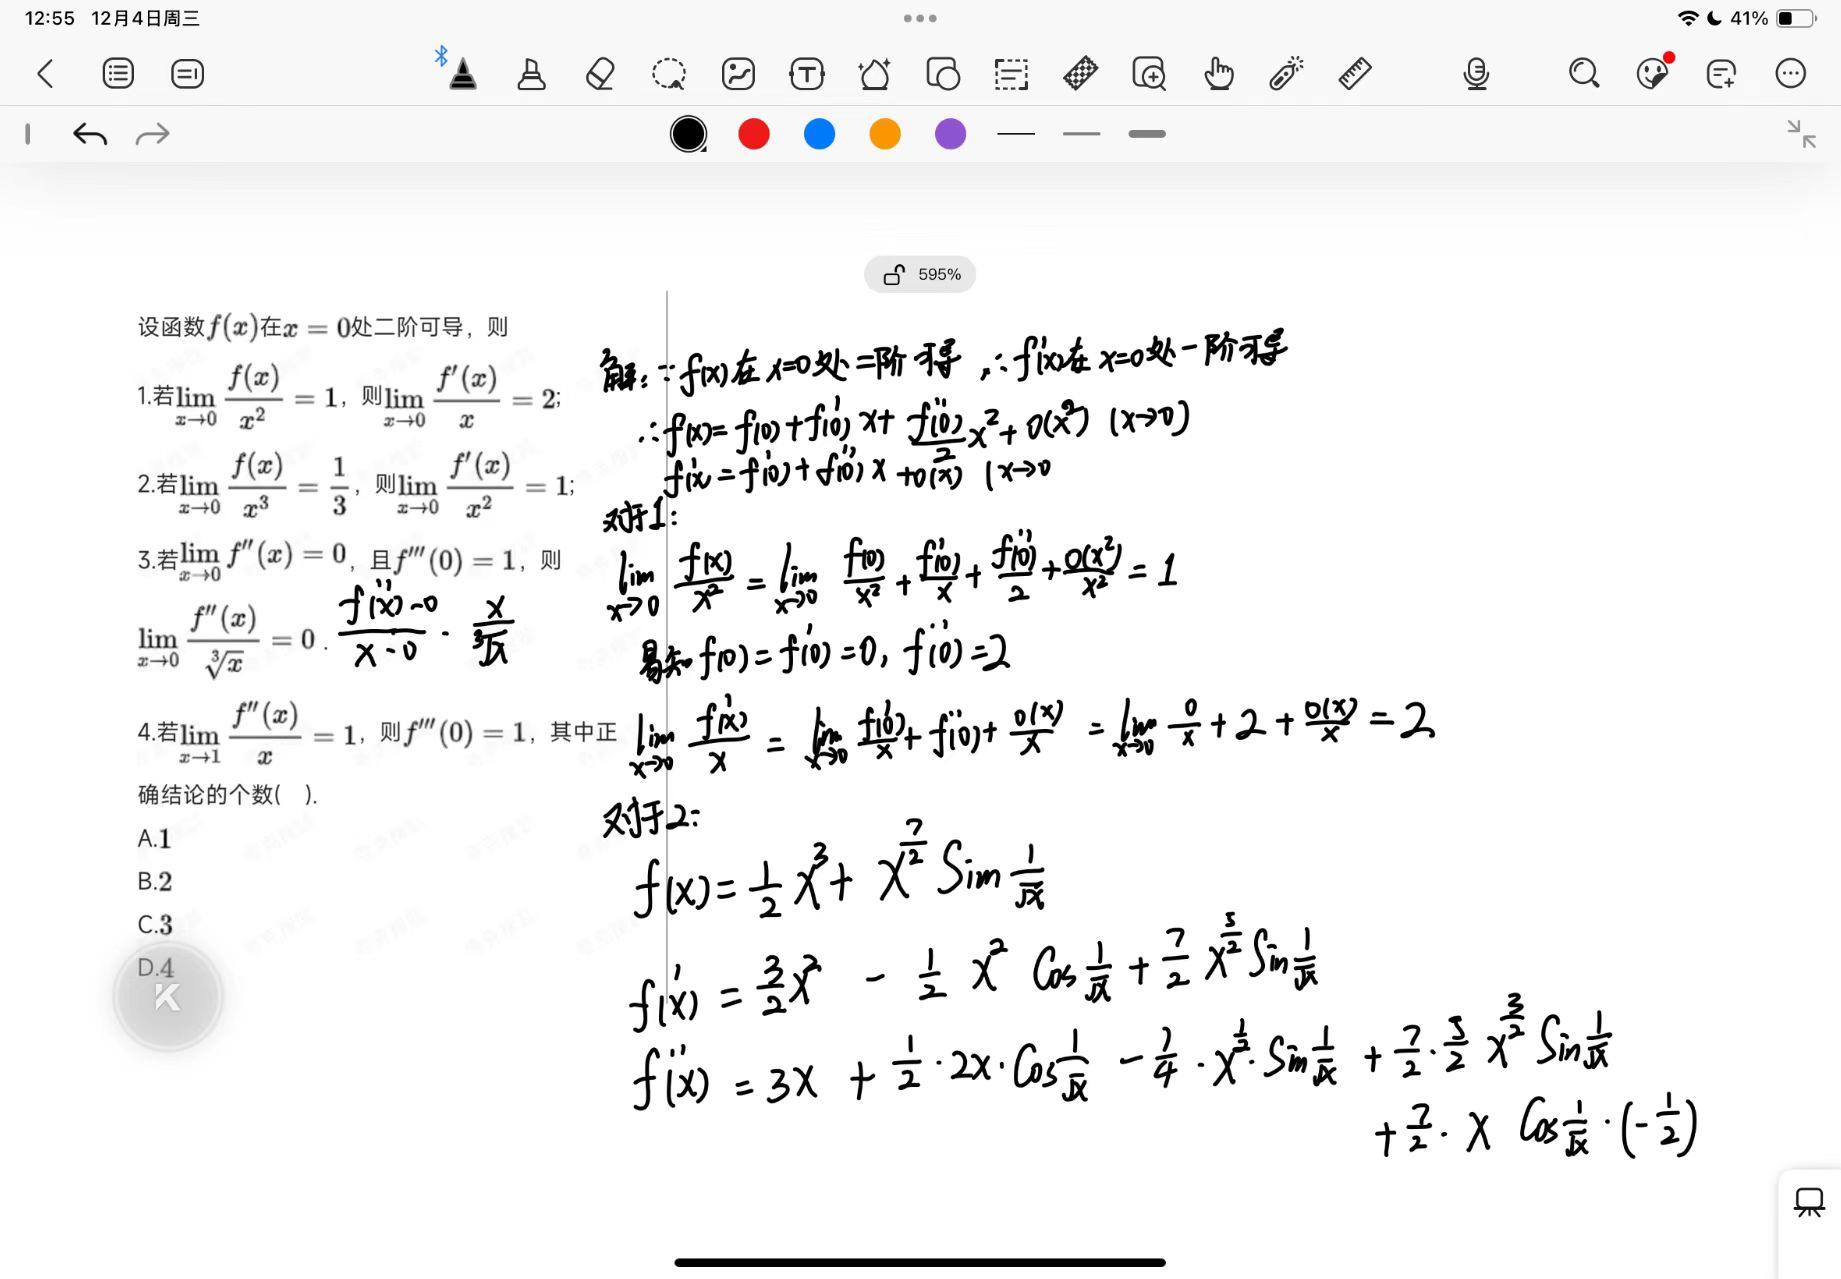 12:55 12月4日周三
41%
595%
设函数f(x)在x = 0处二阶可导，则
1.若lim_{x→0} f(x)/x² = 1，则lim_{x→0} f′(x)/x = 2;
2.若lim_{x→0} f(x)/x³ = 1/3，则lim_{x→0} f′(x)/x² = 1;
3.若lim_{x→0} f″(x) = 0，且f‴(0) = 1，则
lim_{x→0} f″(x)/∛x = 0.
(f″(x)-0)/(x-0) · x/∛x
4.若lim_{x→1} f″(x)/x = 1，则f‴(0) = 1，其中正
确结论的个数( ).
A.1
B.2
C.3
D.4
K
解：∵f(x)在x=0处二阶可导，∴f′(x)在x=0处一阶可导
∴f(x)=f(0)+f′(0)x+f″(0)/2 x²+o(x²) (x→0)
f′(x)=f′(0)+f″(0)x+o(x) (x→0
对于1:
lim_{x→0} f(x)/x² = lim_{x→0} f(0)/x² + f′(0)/x + f″(0)/2 + o(x²)/x² = 1
易知f(0)=f′(0)=0, f″(0)=2
lim_{x→0} f′(x)/x = lim_{x→0} f′(0)/x + f″(0) + o(x)/x = lim_{x→0} 0/x + 2 + o(x)/x = 2
对于2:
f(x)= 1/2 x³ + x^{7/2} Sin 1/√x
f′(x) = 3/2 x² - 1/2 x² Cos 1/√x + 7/2 x^{5/2} Sin 1/√x
f″(x) = 3x + 1/2 · 2x · Cos 1/√x - 1/4 · x^{1/2} · Sin 1/√x + 7/2 · 5/2 x^{3/2} Sin 1/√x
+ 7/2 · x Cos 1/√x · (-1/2)